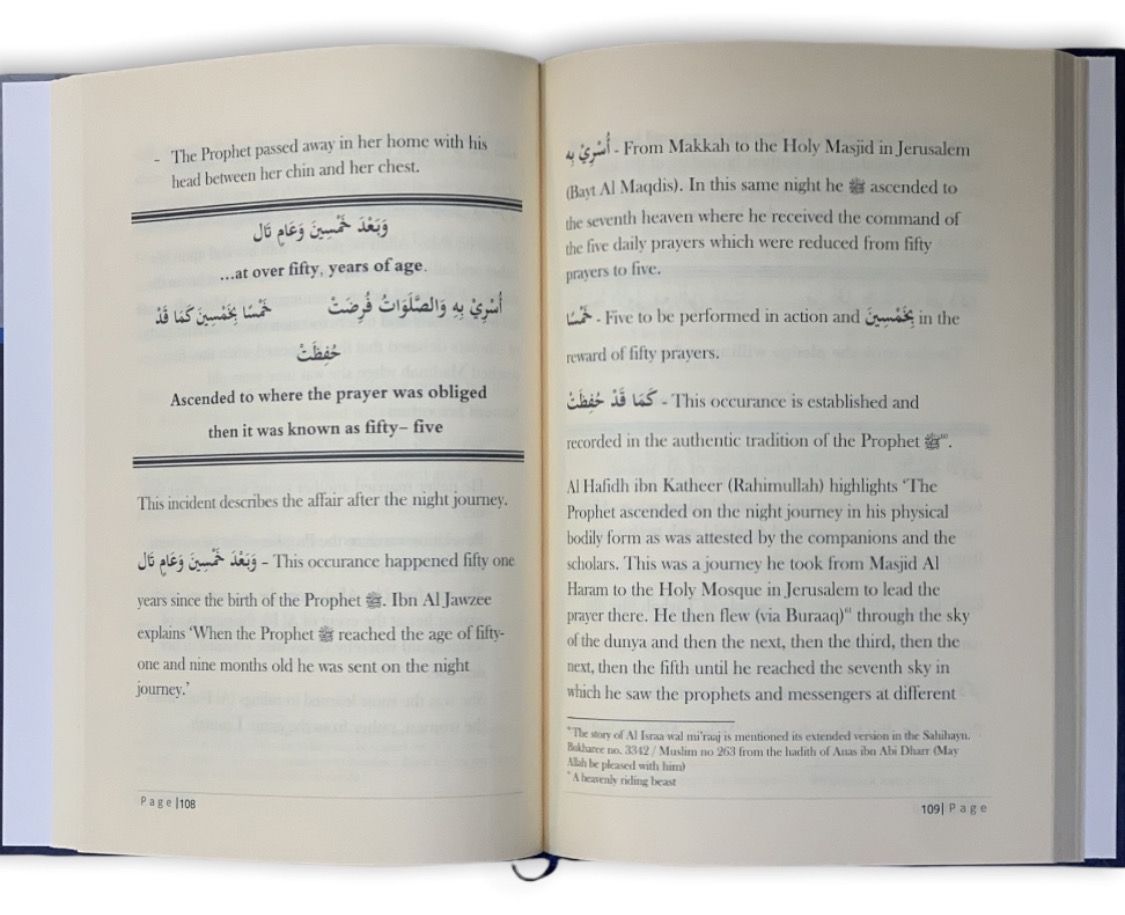 - The Prophet passed away in her home with his
head between her chin and her chest.
وَبَعْدَ خَمْسِينَ وَعَامٍ تَال
...at over fifty, years of age.
أُسْرِيْ بِهِ وَالصَّلَوَاتُ فُرِضَتْ خَمْسًا بِخَمْسِينَ كَمَا قَدْ
حُفِظَتْ
Ascended to where the prayer was obliged
then it was known as fifty– five
This incident describes the affair after the night journey.
وَبَعْدَ خَمْسِينَ وَعَامٍ تَال – This occurance happened fifty one
years since the birth of the Prophet ﷺ. Ibn Al Jawzee
explains ‘When the Prophet ﷺ reached the age of fifty-
one and nine months old he was sent on the night
journey.’
Page |108
أُسْرِيْ بِهِ - From Makkah to the Holy Masjid in Jerusalem
(Bayt Al Maqdis). In this same night he ﷺ ascended to
the seventh heaven where he received the command of
the five daily prayers which were reduced from fifty
prayers to five.
خَمْسًا - Five to be performed in action and بِخَمْسِينَ in the
reward of fifty prayers.
كَمَا قَدْ حُفِظَتْ - This occurance is established and
recorded in the authentic tradition of the Prophet ﷺ.
Al Hafidh ibn Katheer (Rahimullah) highlights ‘The
Prophet ascended on the night journey in his physical
bodily form as was attested by the companions and the
scholars. This was a journey he took from Masjid Al
Haram to the Holy Mosque in Jerusalem to lead the
prayer there. He then flew (via Buraaq) through the sky
of the dunya and then the next, then the third, then the
next, then the fifth until he reached the seventh sky in
which he saw the prophets and messengers at different
The story of Al Israa wal mi'raaj is mentioned its extended version in the Sahihayn.
Bukharee no. 3342 / Muslim no 263 from the hadith of Anas ibn Abi Dharr (May
Allah be pleased with him)
A heavenly riding beast
109| Page